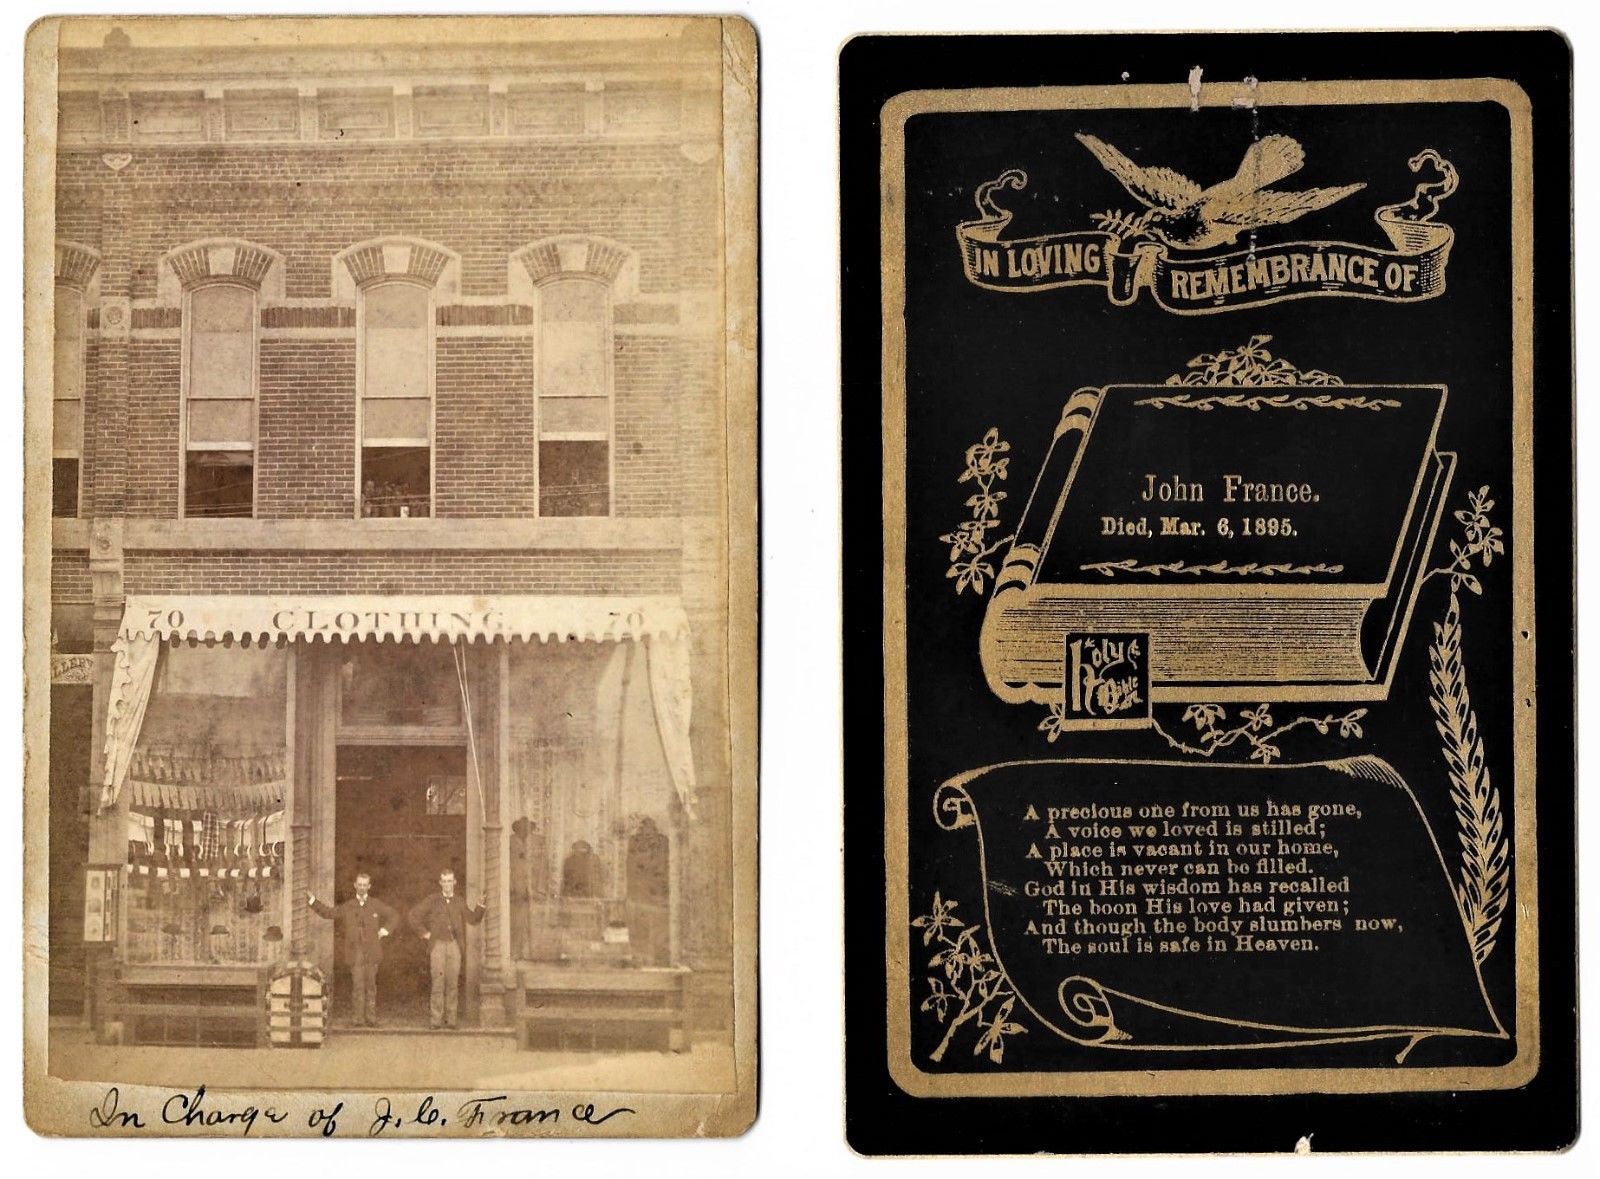 70 CLOTHING. 70
LLERY
In Charge of J. C. France
IN LOVING REMEMBRANCE OF
John France.
Died, Mar. 6, 1895.
Holy
Bible
A precious one from us has gone,
A voice we loved is stilled;
A place is vacant in our home,
Which never can be filled.
God in His wisdom has recalled
The boon His love had given;
And though the body slumbers now,
The soul is safe in Heaven.